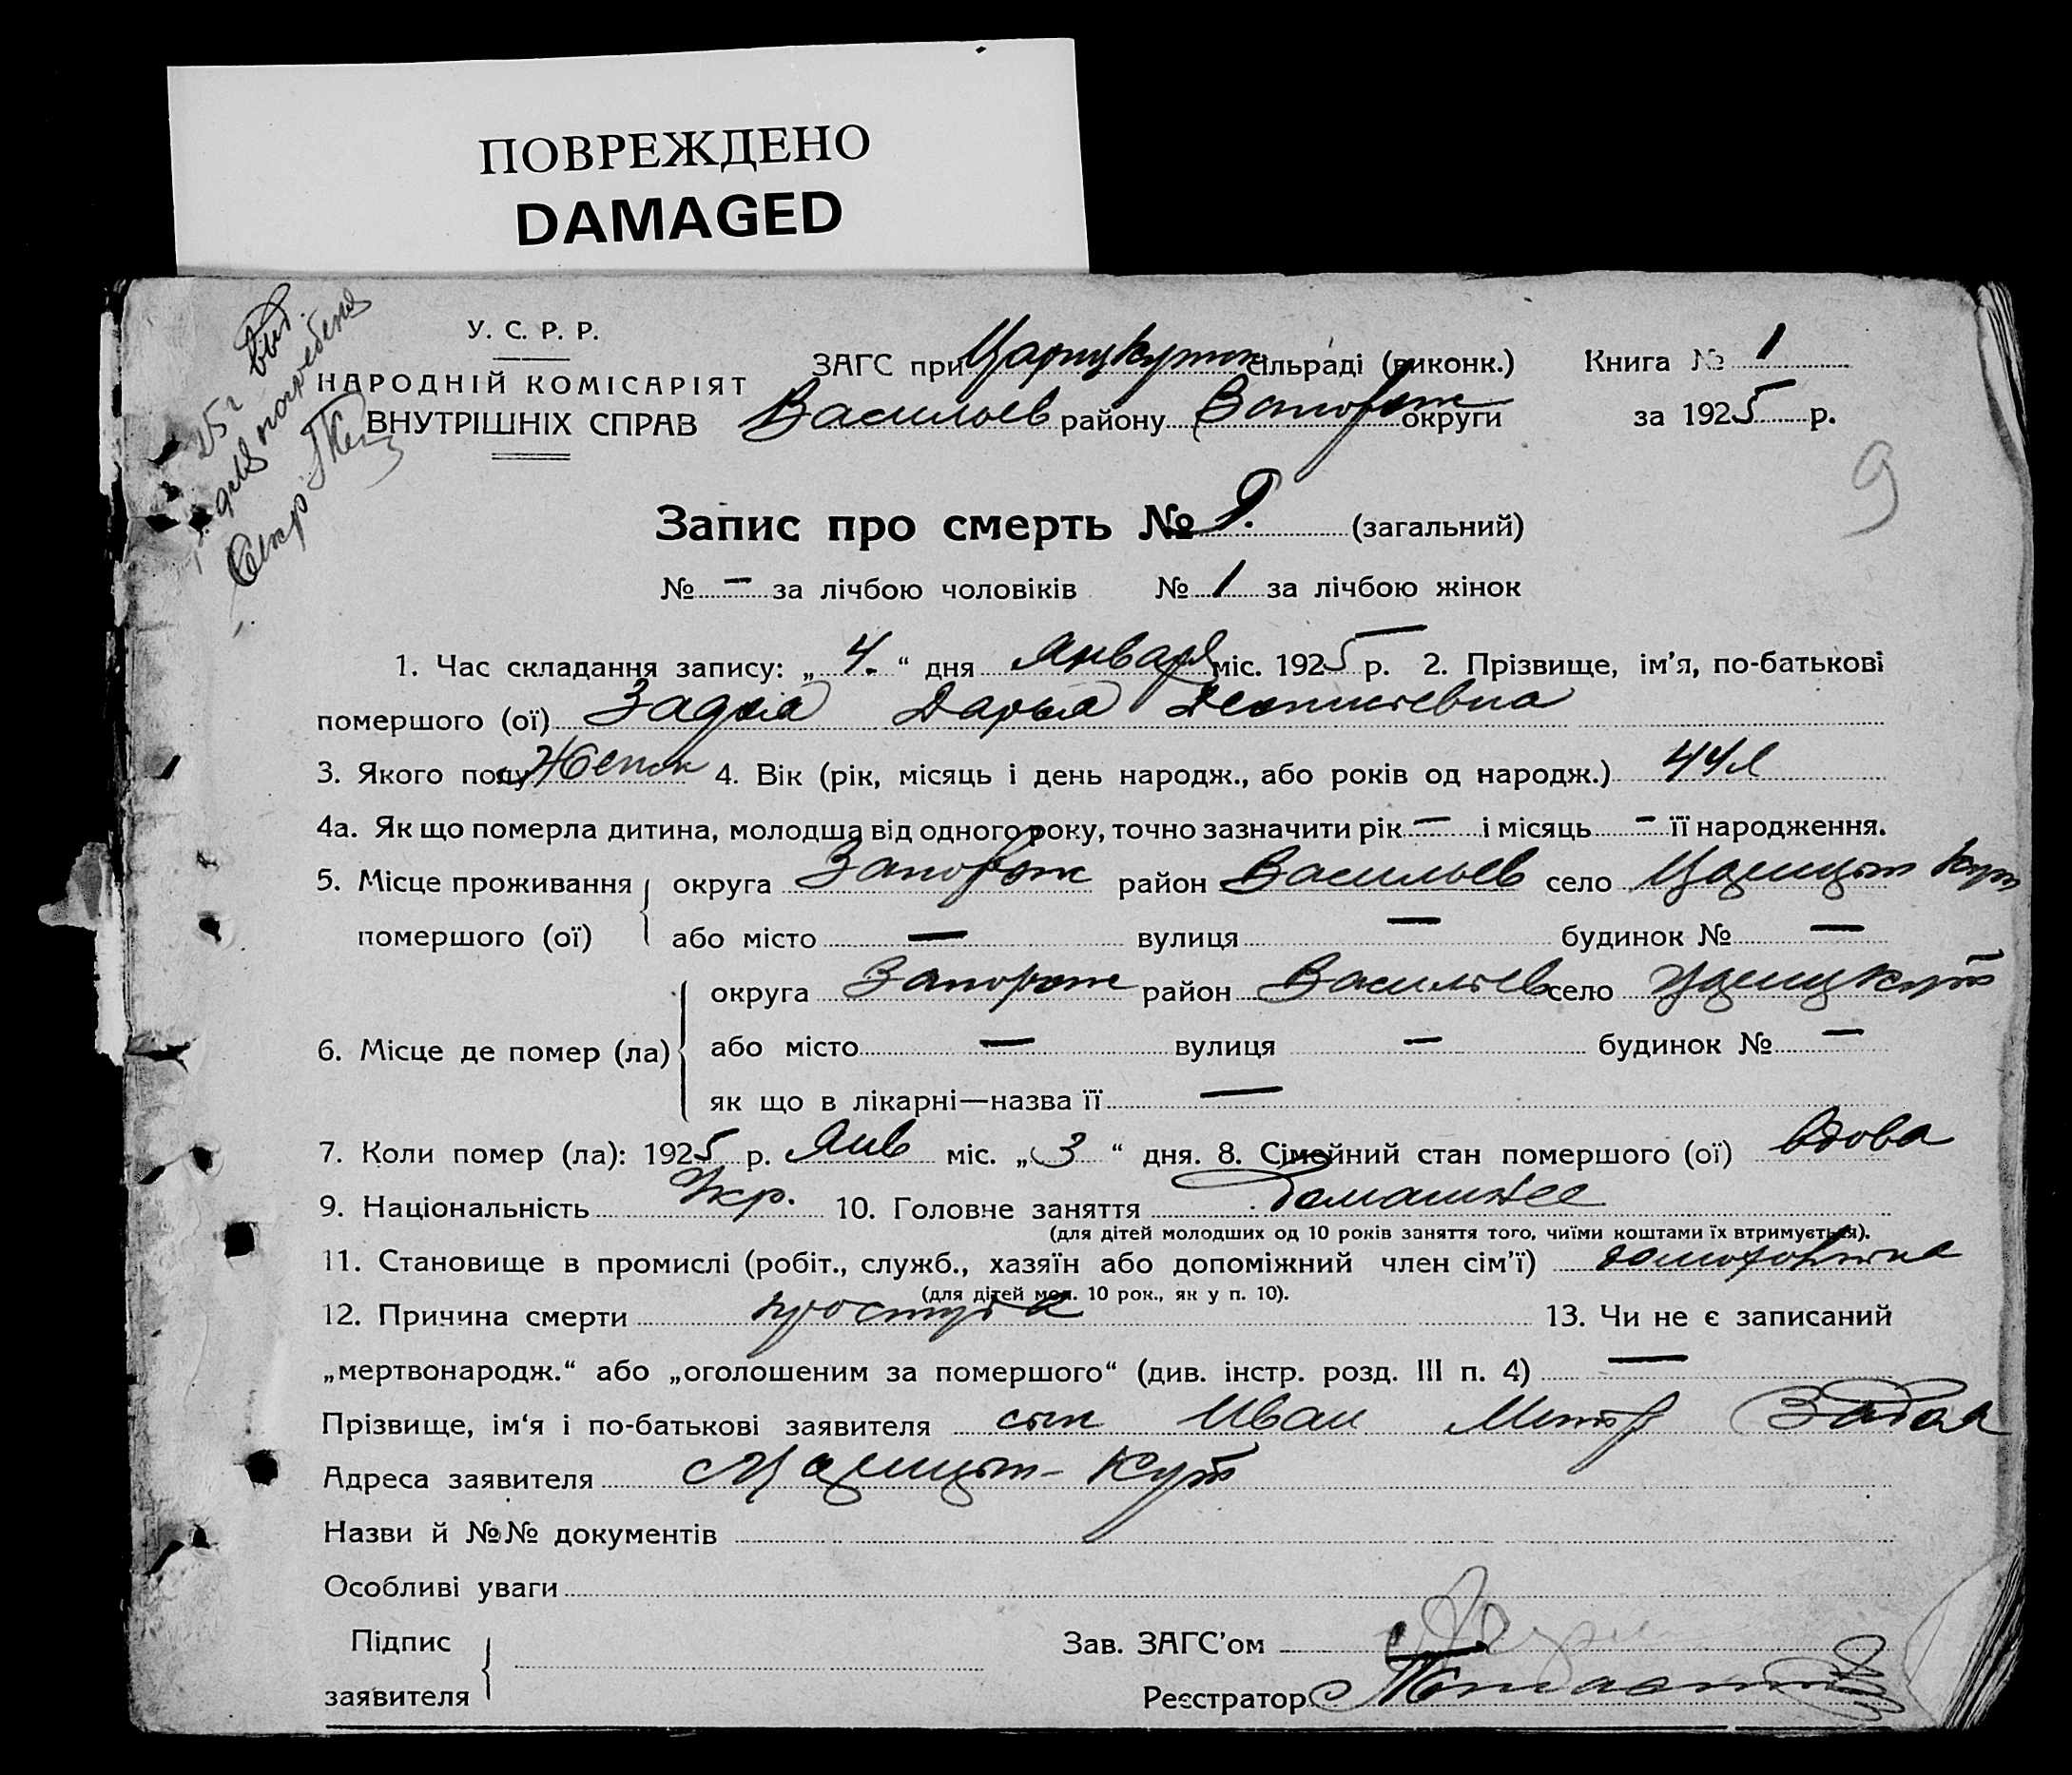 ПОВРЕЖДЕНО
DAMAGED
25 г выд.
для погребения
Секр
У. С. Р. Р.
НАРОДНІЙ КОМІСАРІЯТ
ВНУТРІШНІХ СПРАВ
ЗАГС при Царицкутск сільраді (виконк.) Книга № 1
Васильев району Запорож округи за 1925 р.
9
Запис про смерть № 9. (загальний)
№ — за лічбою чоловіків № 1 за лічбою жінок
1. Час складання запису: „4.“ дня Января міс. 1925 р. 2. Прізвище, ім’я, по-батькові
помершого (ої) Задоя Дарья
3. Якого полу Женск 4. Вік (рік, місяць і день народж., або років од народж.) 44 л
4а. Як що померла дитина, молодша від одного року, точно зазначити рік — і місяць — її народження.
5. Місце проживання помершого (ої) округа Запорож район Васильев село Царицын Кут
або місто — вулиця — будинок № —
6. Місце де помер (ла) округа Запорож район Васильев село Царицкут
або місто — вулиця — будинок № —
як що в лікарні—назва її —
7. Коли помер (ла): 1925 р. Янв міс. „3“ дня. 8. Сімейний стан помершого (ої) вдова
9. Національність Укр. 10. Головне заняття Домашнее
(для дітей молодших од 10 років заняття того, чиїми коштами їх втримується).
11. Становище в промислі (робіт., служб., хазяїн або допоміжний член сім’ї) домохозяйка
(для дітей мол. 10 рок., як у п. 10).
12. Причина смерти простуда 13. Чи не є записаний
„мертвонародж.“ або „оголошеним за помершого“ (див. інстр. розд. III п. 4) —
Прізвище, ім‘я і по-батькові заявителя сын Иван Митр Задоя
Адреса заявителя с Царицын-Кут
Назви й №№ документів
Особливі уваги
Підпис заявителя
Зав. ЗАГС’ом
Реєстратор